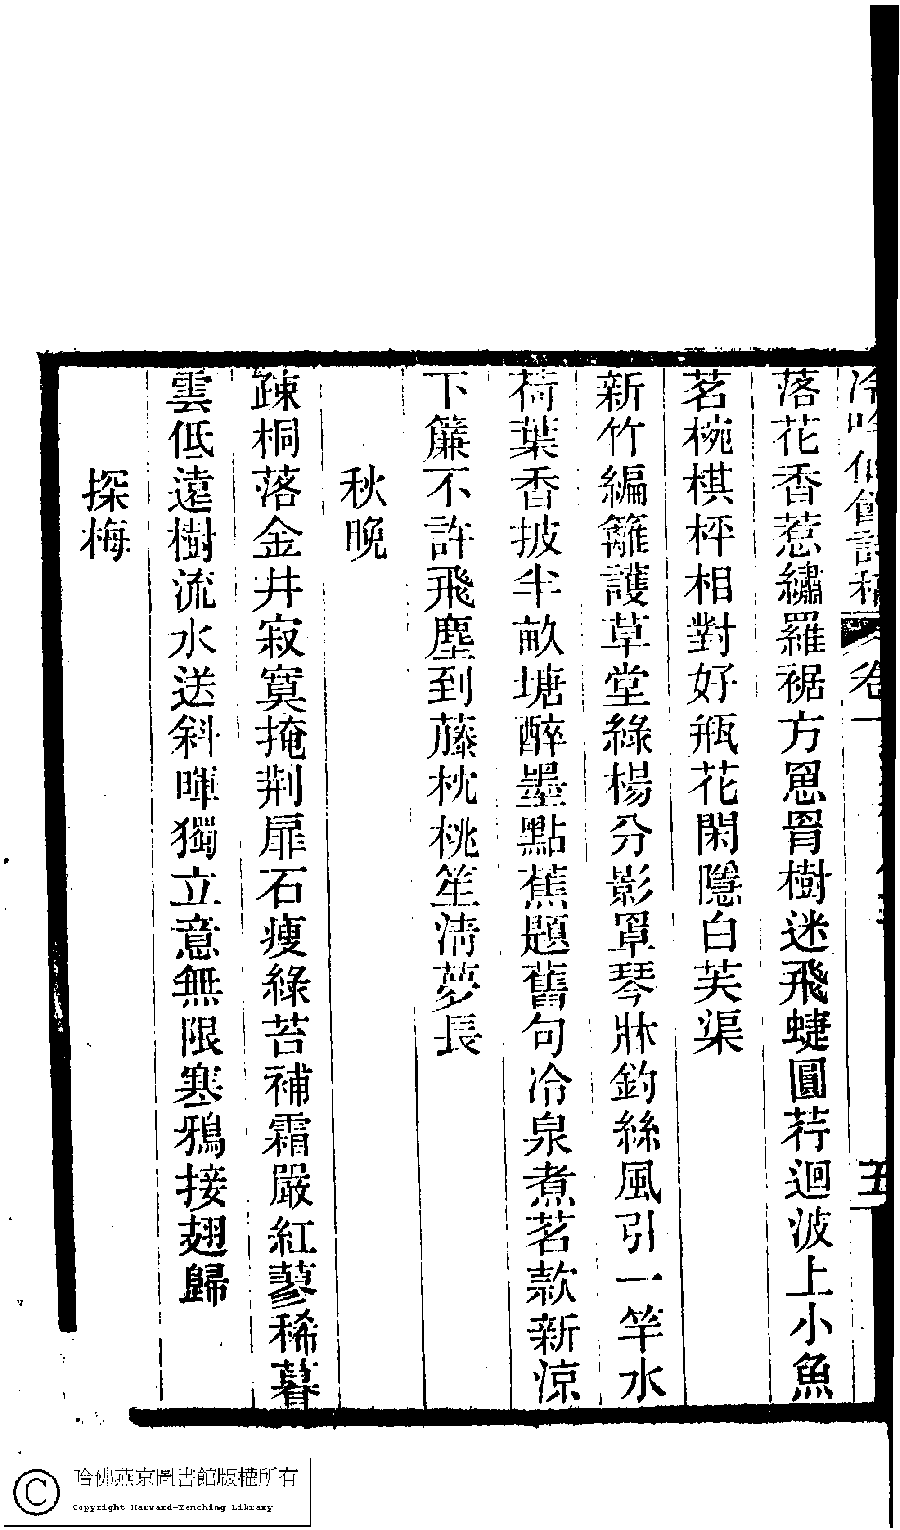 冷吟仙館詩稿 卷一 五
落花香惹繡羅裾方罳罥樹迷飛蜨圓荇迴波上小魚
茗椀棋枰相對好瓶花閑隱白芙渠
新竹編籬護草堂綠楊分影罩琴牀釣絲風引一竿水
荷葉香披半畝塘醉墨點蕉題舊句冷泉煮茗款新涼
下簾不許飛塵到藤枕桃笙清夢長
秋晚
疎桐落金井寂寞掩荆扉石瘦綠苔補霜嚴紅蓼稀暮
雲低遠樹流水送斜暉獨立意無限寒鴉接翅歸
探梅
哈佛燕京圖書館版權所有
Copyright Harvard-Yenching Library